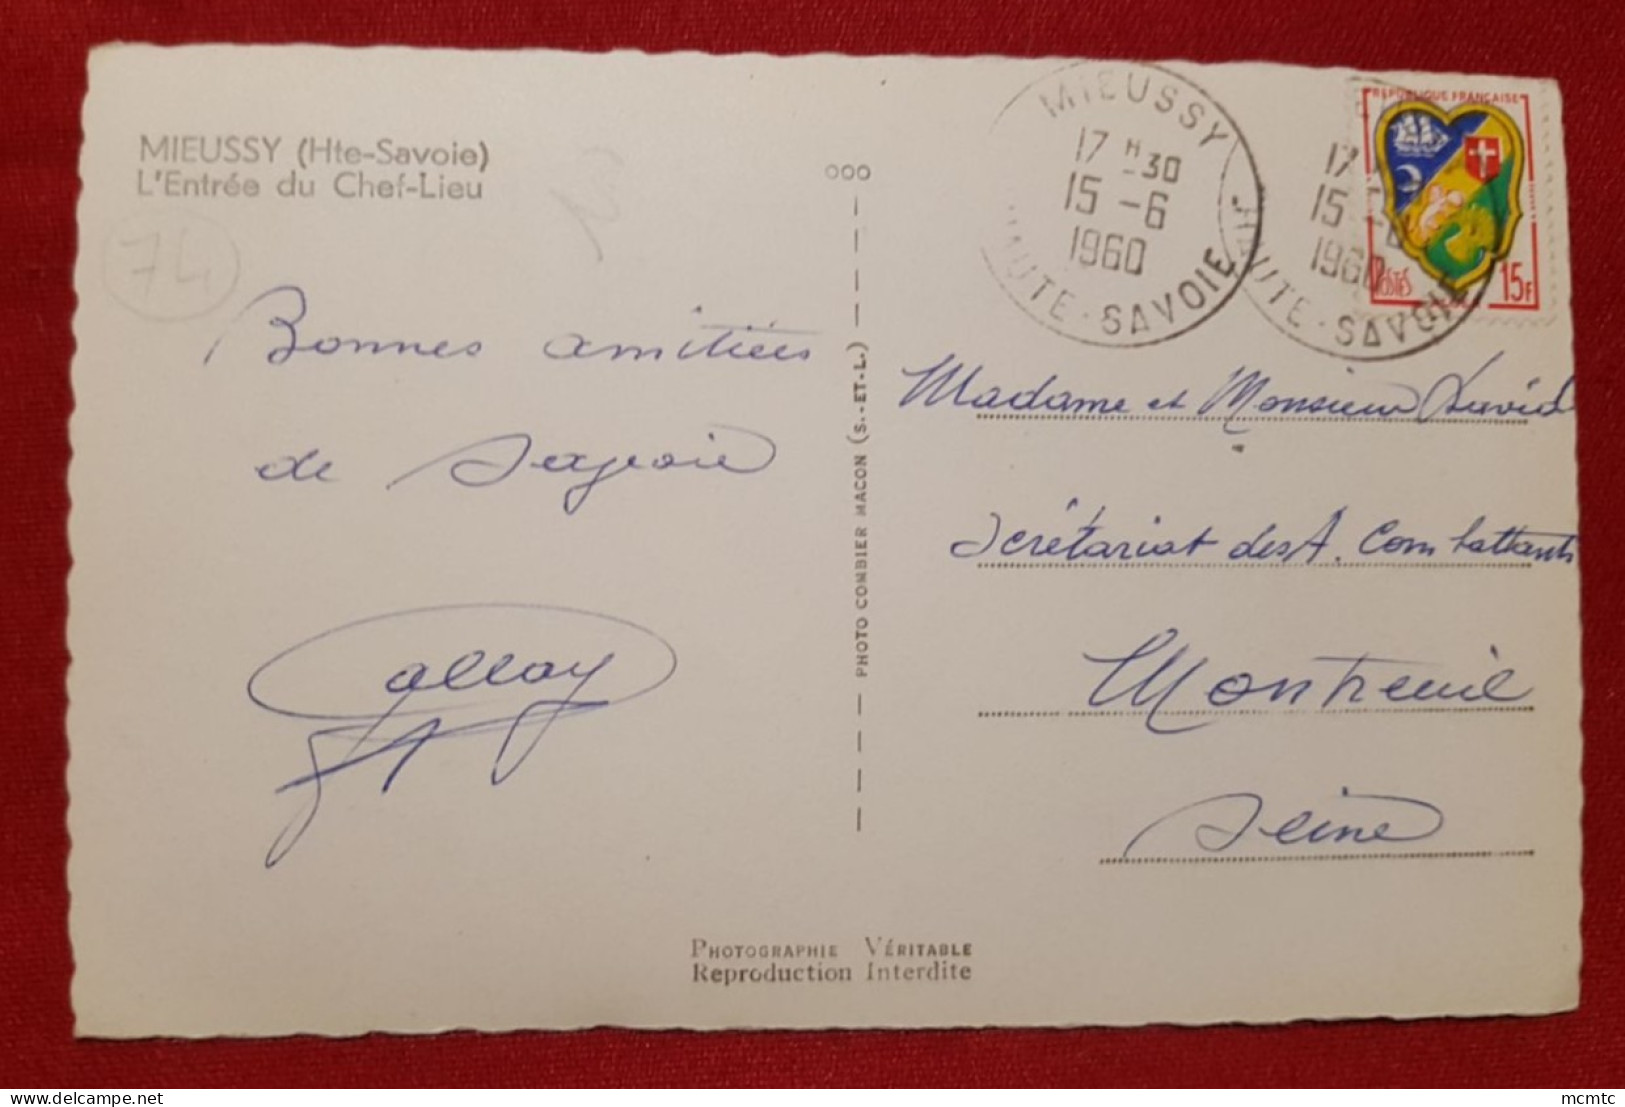 MIEUSSY (Hte-Savoie)
L'Entrée du Chef-Lieu
74
Bonnes amitiées
de
ooo
PHOTO COMBIER MACON (S.-ET-L.)
MIEUSSY
17 H 30
15 - 6
1960
HAUTE-SAVOIE
17
15 - 6
1960
HAUTE-SAVOIE
REPUBLIQUE FRANÇAISE
POSTES
15F
Madame et Monsieur
Secrétariat des A. Combattants
Montreuil
Seine
PHOTOGRAPHIE VÉRITABLE
Reproduction Interdite
mcmtc